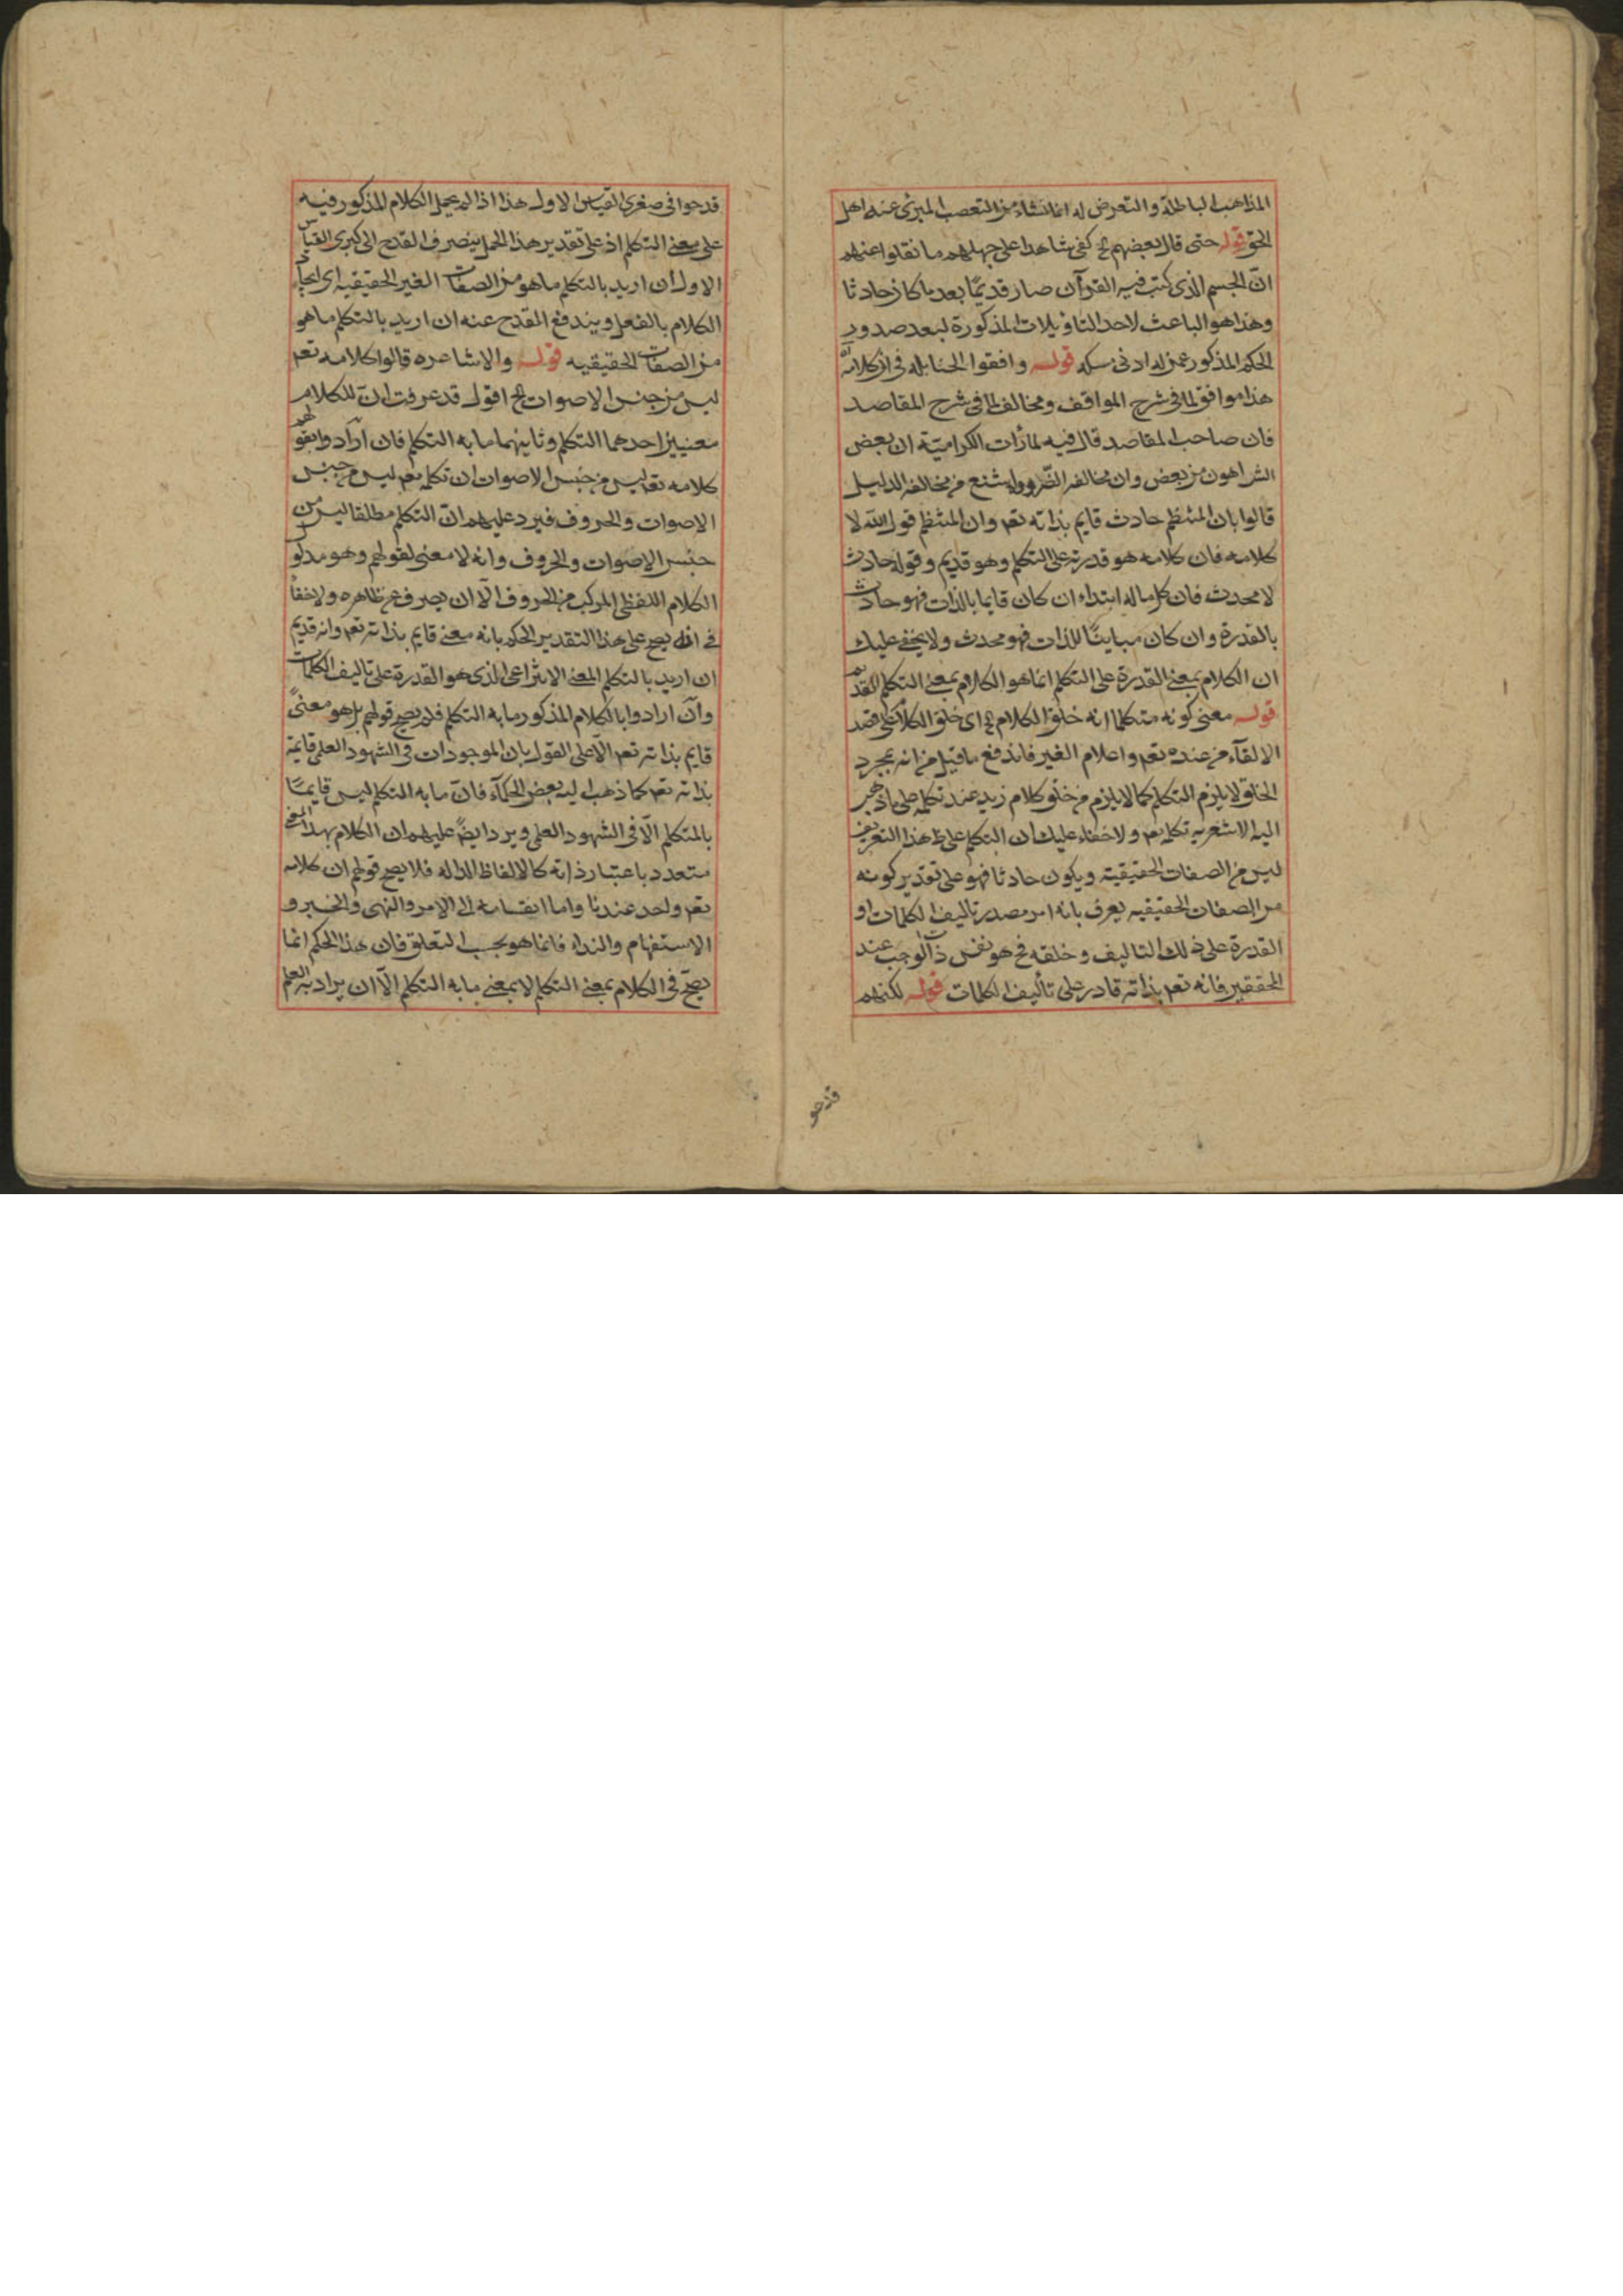 المذاهب الباطلة والتعرض له انما نشاء من التعصب المبرئ عنه اهل
الحق قوله حتى قال بعضهم الخ كفى شاهدا على جهلهم ما نقلوا عنهم
انّ الجسم الذى كتب فيه القرآن صار قديمًا بعد ما كان حادثا
وهذا هو الباعث لاحد التاويلات المذكورة لبعد صدور
الحكم المذكور عمن له ادنى مسكه قوله وافقوا الحنابله فى ان كلامه
هذا موافق لما فى شرح المواقف ومخالف لما فى شرح المقاصد
فان صاحب المقاصد قال فيه لما رأت الكرامية ان بعض
الشر اهون من بعض وان مخالفة الضرورة اشنع من مخالفة الدليل
قالوا بان المنتظم حادث قايم بذاته تعم وان المنتظم قول الله لا
كلامه فان كلامه هو قدرته على التكلم وهو قديم وقوله حادث
لا محدث فان كل ما له ابتداء ان كان قايما بالذات فهو حادث
بالقدرة وان كان مباينًا للذات فهو محدث ولا يخفى عليك
ان الكلام بمعنى القدرة على التكلم انما هو الكلام بمعنى التكلم القديم
قوله معنى كونه متكلما انه خلق الكلام الخ اى خلق الكلام على قصد
الالقآء من عنده تعم واعلام الغير فاندفع ما قيل من انه بمجرد
الخلق لا يلزم التكلم كما لا يلزم من خلق كلام زيد عند تكلمه على ما ذهب
اليه الاشعريه تكلمه تعم ولا خفاء عليك ان التكلم على هذا التعريف
ليس من الصفات الحقيقية ويكون حادثا فهو على تقدير كونه
من الصفات الحقيقيه يعرف بانه امر مصدر تاليف الكلمات او
القدرة على ذلك التاليف وخلقه فح هو نفس ذات الواجب عند
المحققين فانه تعم بذاته قادر على تأليف الكلمات قوله لكنهم
قدحوا
قدحوا فى صغرى القياس الاول هذا اذا لم يحمل الكلام المذكور فيه
على معنى التكلم اذ على تقدير هذا الحمل ينصرف القدح الى كبرى القياس
الاول ان اريد بالتكلم ما هو من الصفات الغير الحقيقيه اى ايجاد
الكلام بالفعل ويندفع القدح عنه ان اريد بالتكلم ما هو
من الصفات الحقيقيه قوله والاشاعره قالوا كلامه تعم
ليس من جنس الاصوات الخ اقول قد عرفت انّ للكلام
معنيين احدهما التكلم وثانيهما ما به التكلم فان ارادوا بقولهم
كلامه تعم ليس من جنس الاصوات ان تكلمه تعم ليس من جنس
الاصوات والحروف فيرد عليهم انّ التكلم مطلقا ليس من
جنس الاصوات والحروف وانه لا معنى لقولهم وهو مدلول
الكلام اللفظى المركب من الحروف الّا ان يصرف عن ظاهره ولا خفأ
فى انه يصح على هذا التقدير الحكم بانه معنى قايم بذاته تعم وانه قديم
ان اريد بالتكلم المعنى الانتزاعى الذى هو القدرة على تاليف الكلمات
وان ارادوا بالكلام المذكور ما به التكلم فلا يصح قولهم بل هو معنىً
قايم بذاته تعم الّا على القول بان الموجودات فى الشهود العلمى قايمة
بذاته تعم كما ذهب اليه بعض الحكمآء فانّ ما به التكلم ليس قايمًا
بالمتكلم الّا فى الشهود العلمى ويرد ايضًا عليهم ان الكلام بهذا المعنى
متعدد باعتبار ذاته كالالفاظ الداله فلا يصح قولهم ان كلامه
تعم واحد عندنا واما انقسامه الى الامر والنهى والخبر و
الاستفهام والنداء فانما هو بحسب التعلق فان هذا الحكم انما
يصحّ فى الكلام بمعنى التكلم لا بمعنى ما به التكلم الّا ان يراد به العلم